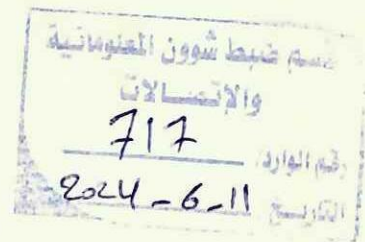 قسم ضبط شؤون المعلوماتية
والإتصالات
رقم الوارد 717
التاريخ 2024-6-11